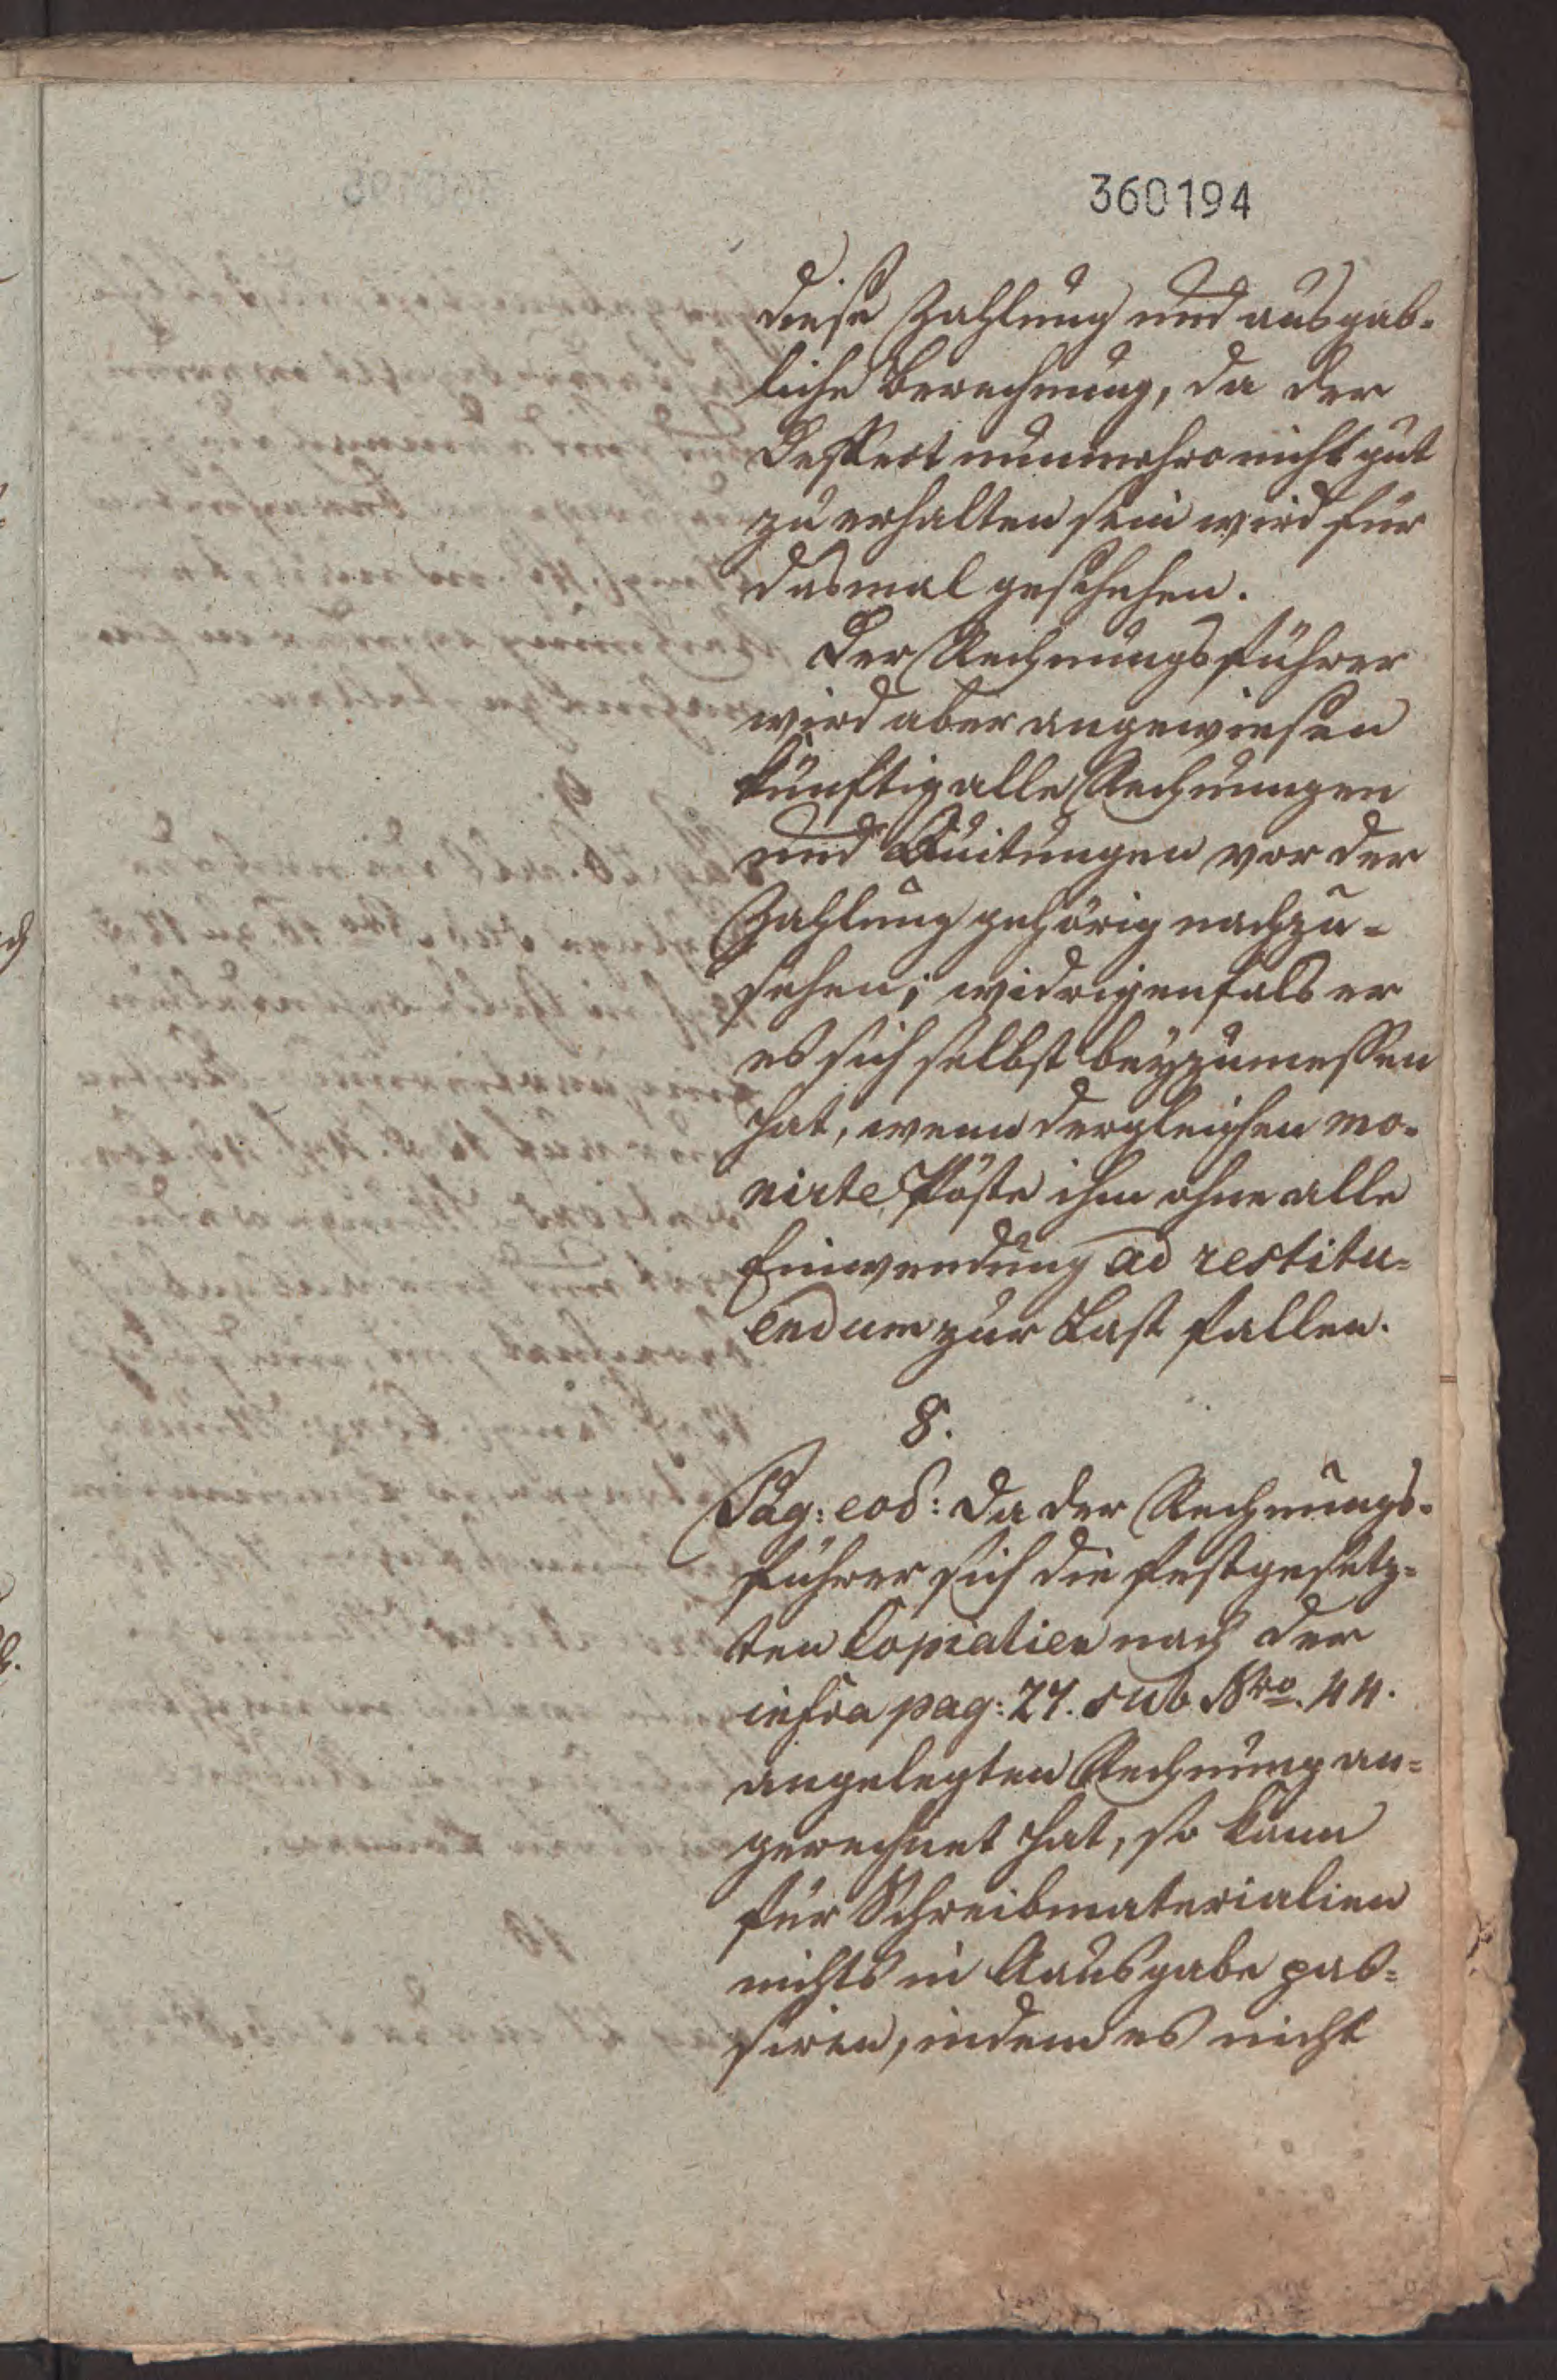 360194
diese Zahlung und ausgab-
liche Berechnung, da der
Defect nunmehro nicht gut
zu erhalten sein wird für
dasmal geschehen.
Der Rechnungsführer
wird aber angewiesen
künftig alle Rechnungen
und Quitungen vor der
Zahlung gehörig nachzu-
sehen; widrigenfals er
es sich selbst beyzumessen
hat, wenn dergleichen mo-
nirte Pöste ihm ohne alle
Einwendung ad restitu-
endum zur Last fallen.
8.
Pag: eod: Da der Rechnungs-
führer sich die festgesetz-
ten Copialien nach der
infra pag: 27. sub Nro. 44.
angelegten Rechnung an-
gerechnet hat, so kann
für Schreibmaterialien
nichts in Ausgabe pas-
siren, indem es nicht